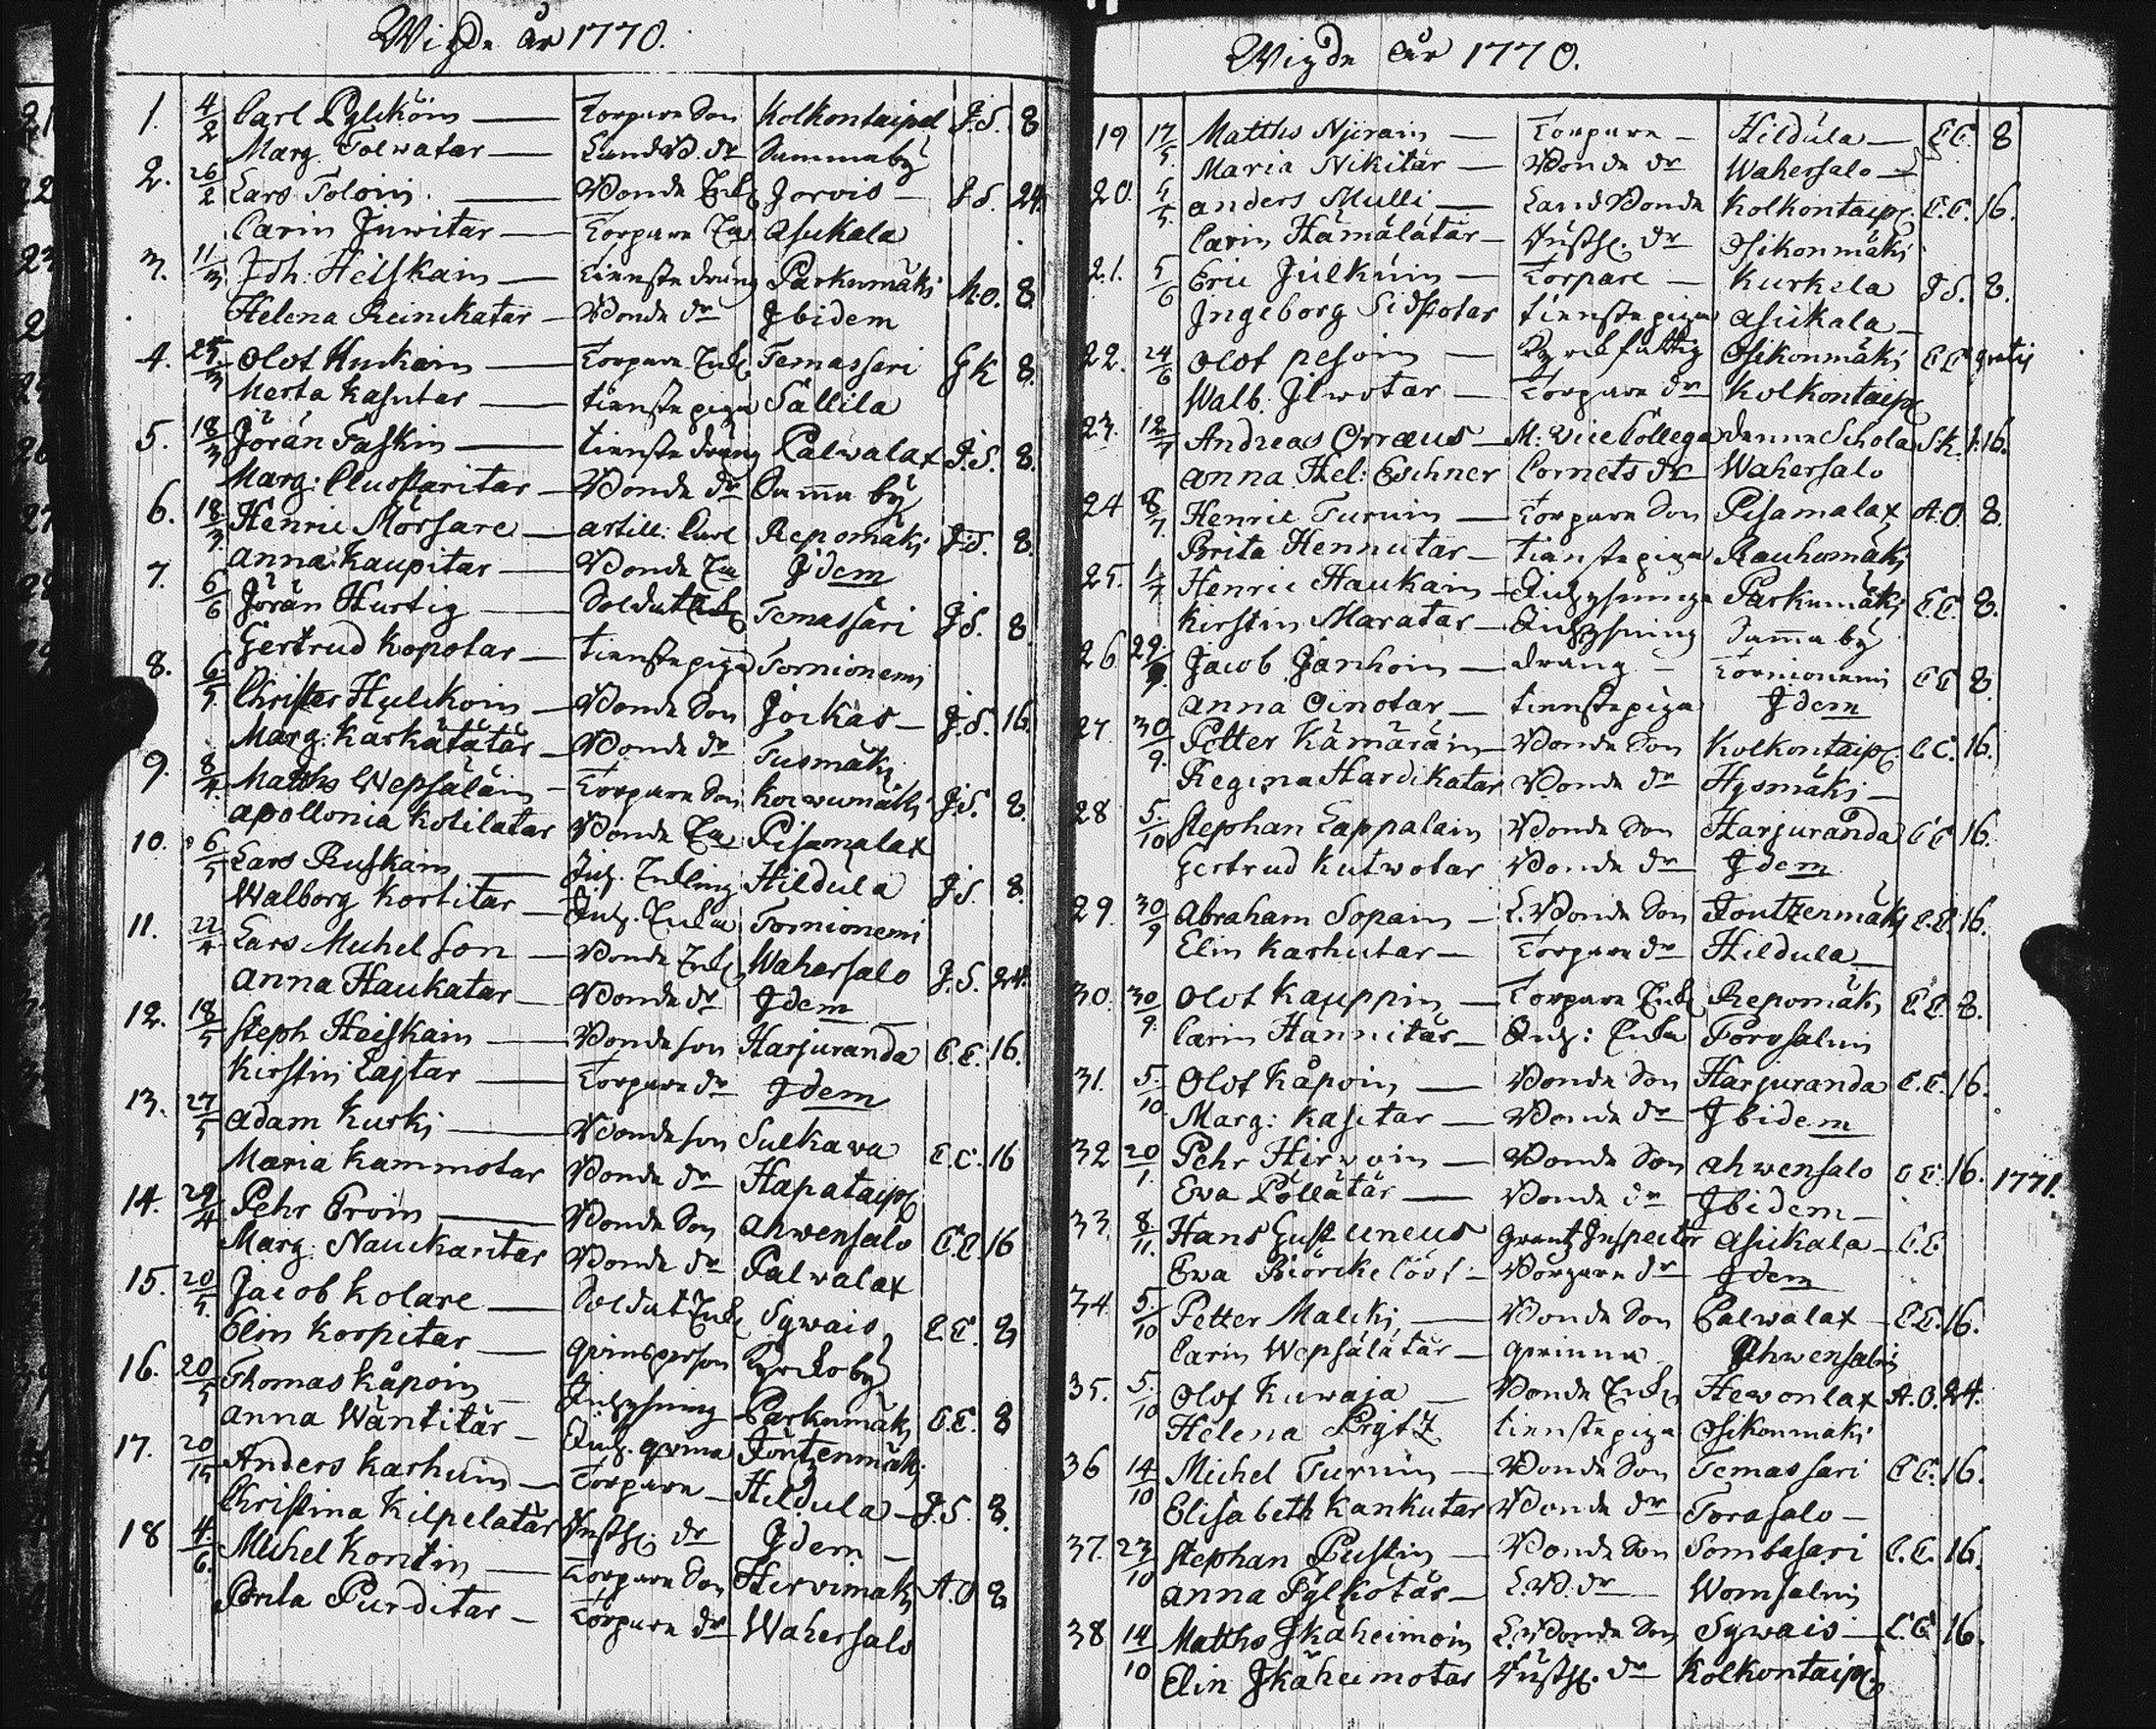 Wigde år 1770.
1. 4/2 Carl Pylcköin — Torpare Son Kolkontaipal J.S. 8
Marg. Tolwatar — Landb. dr Summa by
2. 26/2 Lars Toloin — Bonde Enk. Jorvis — J.S. 24.
Carin Inwitar — Torpare Enk. Asukala
3. 11/3 Joh. Heiskain — tienste dräng Parkumäki M.O. 8
Helena Reinikatar — Bonde dr Ibidem
4. 25/3 Olof Huckain — Torpare Enk. Temassari G K 8.
Merta Kasutar — tienste piga Sallila
5. 18/3 Jöran Taskin — tienste dräng Palwalax J.S. 8.
Marg. — Bonde dr Samma by
6. 18/3 Henric Mörsare — artill. Carl Repomäki J.S. 8.
Anna Kaupitar — Bonde Enk. Idem
7. 6/6 Jöran Hurtig — Soldat Enk. Temassari J.S. 8
Gertrud Kopotar — tienste piga Tornionemi
8. 6/5 Christer Hulckoin — Bonde Son Joikas — J.S. 16
Marg. Karkätätär — Bonde dr Tusmäki
9. 8/4 Matths Wepsäläin — Torpare Son J.S. 8.
Apollonia Kotilatar Bonde Enk. Pisamalax
10. 6/5 Lars Ruskain — Inh. Enkling Hildula J.S. 8.
Walborg Kortitar — Inh. Enka Tornionemi
11. 22/4 Lars Michel Son — Bonde Enk. Wahersalo J.S. 24.
Anna Haukatar — Bonde dr Idem
12. 18/5 Steph Heiskain — Bonde son Harjuranda C.C. 16.
Kirstin Lajtar — Torpare dr Idem
13. 27/5 Adam Kurki — Bonde son Sulkawa C.C. 16
Maria Kammotar Bonde dr Hapataip.
14. 29/4 Pehr Ervin — Bonde Son Ahwensalo C.C. 16
Marg. Nauckaritar Bonde dr Palwalax
15. 20/5 Jacob Kolare — Soldat Enk. Sywais C.C. 8
Elin Korpitar — qvinsperson Kyrkoby
16. 20/5 Thomas Kåpoin — Inhysning Parkumäki C.C. 8
Anna Wäntitär — Inh. qvina Joutzenmäki
17. 20/15 Anders Karhuin — Torpare — Hildula — J.S. 8.
Christina Kilpelatär dr Idem —
18 4/6. Michel Kontin — Torpare Son Hervimäki A.O 8
Brita Purditar — Torpare dr Wahersalo
Wigde år 1770.
19 17/5. Matths Nyirain — Torpare — Hildula — C.C. 8
Maria Nikitär — Bonde dr Wahersalo —
20. 4/5. Anders Mulli — Land Bonde Kolkontaip. C.C. 16.
Carin Hämälätär — dr Osikonmäki
21. 5/6 Eric Julkuin — Torpare — Kurkela J S. 8.
Ingeborg Sidpotar tienste piga Asikala —
22. 24/6 Olof Pesoin — Kyrck fattig Osikonmäki C C gratis
Walb. Ilwotar — Torpare dr Kolkontaip.
23. 12/7 Andreas Orræus — M: Vice Collega Denna Schola S.K. 1:16.
Anna Hel: Eschner Cornets dr Wahersalo
24 8/7 Henric Turuin — Torpare Son Pisamalax A.O. 8.
Brita Hennutar — tienste piga Rauhomäki
25. 1/7 Henric Haukain — Inhysninge Parkumäki C.C. 8.
Kirstin Maratar — Inhysning Samma by
26 29/9. Jacob Janhoin — dräng — Tornionemi C C 8.
Anna Oinotar — tienste piga Idem
27 30/9. Petter Kämäräin — Bonde Son Kolkontaip. C.C. 16.
Regina Hardikatar Bonde dr Hysmäki —
28 5./10 Stephan Lappalain Bonde Son Harjuranda C C 16.
Gertrud Kutwotar Bonde dr Idem
29. 30/9 Abraham Sopain — L. Bonde Son Joutzenmäki C.C. 16.
Elin Karhutar — Torpare dr Hildula —
30. 30/9. Olof Kauppin — Torpare Enk. Repomäki C.C. 8.
Carin Hannitär — Inh: Enka Torosalmi
31. 5./10 Olof Kåpoin — Bonde Son Harjuranda C.C. 16.
Marg: Kasitar — Bonde dr Ibidem
32 20/1. Pehr Hirwoin — Bonde Son Ahwensalo C C. 16. 1771.
Ewa Pöllätär — Bonde dr Ibidem —
33. 8/11. Hans Gust Uneus Grentz Inspector Asikala — C.C
Ewa Biörckelööf — Borgare dr Idem
34 5./10 Petter Malcki — Bonde Son Palwalax — C.C. 16.
Carin Wepsälätär — qwinna Ahwensalmi
35. 5./10 Olof Kuwaja — Bonde Enk. Hewonlax A.O. 24.
Helena — tienste piga Osikonmäki
36 14/10 Michel Turuin — Bonde Son Temassari C C. 16.
Elisabeth Kankutar Bonde dr Torasalo —
37. 23/10 Stephan Pustin — Bonde Son Sombasari C.C. 16.
Anna Pylkötär — L.B. dr Womsalmi
38 14/10 Matths Ikäheimoin L. Bonde Son Sywais — C.C 16.
Elin Ikäheimotar dr Kolkontaip.